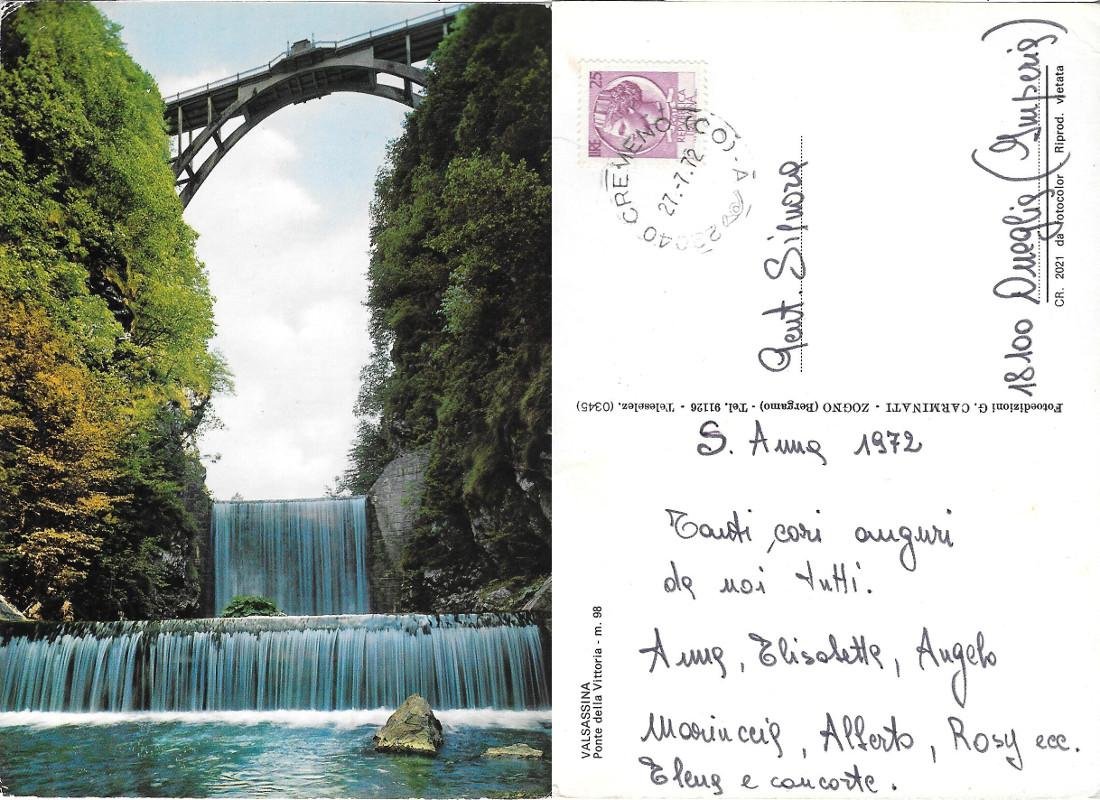 LIRE 25
REPUBBLICA ITALIANA
22040 CREMENO (CO) - A
27.-7.72
Gent. Signora
18100 Oneglia (Imperia)
CR. 2021 da fotocolor Riprod. vietata
Fotoedizioni G. CARMINATI - ZOGNO (Bergamo) - Tel. 91126 - Teleselez. (0345)
S. Anna 1972
Tanti cari auguri
da noi tutti.
Anna, Elisabetta, Angelo
Mariuccia, Alberto, Rosy ecc.
Elena e consorte.
VALSASSINA
Ponte della Vittoria - m. 98